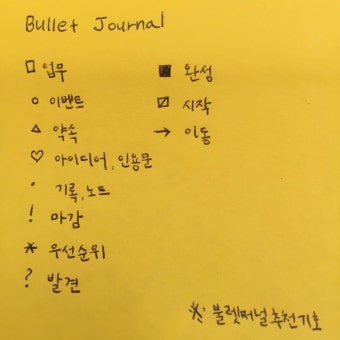 Bullet Journal
□ 업무 ■ 완성
○ 이벤트 ⍁ 시작
△ 약속 → 이동
♡ 아이디어, 인용문
• 기록, 노트
! 마감
* 우선순위
? 발견
※ 불렛저널 추천기호